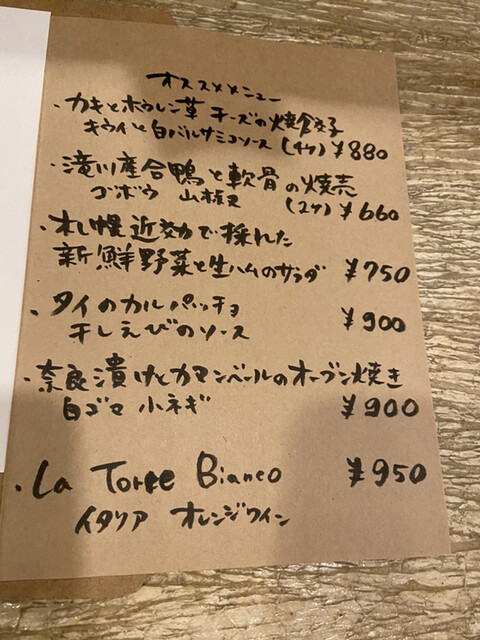 オススメメニュー
・カキとホウレン草 チーズの焼餃子
キウイと白バルサミコソース (4ケ) ¥880
・滝川産合鴨と軟骨の焼売
ゴボウ 山椒 (2ケ) ¥660
・札幌近効で採れた
新鮮野菜と生ハムのサラダ ¥750
・タイのカルパッチョ
干しえびのソース ¥900
・奈良漬けとカマンベールのオーブン焼き
白ゴマ 小ネギ ¥900
・La Torre Bianco ¥950
イタリア オレンジワイン